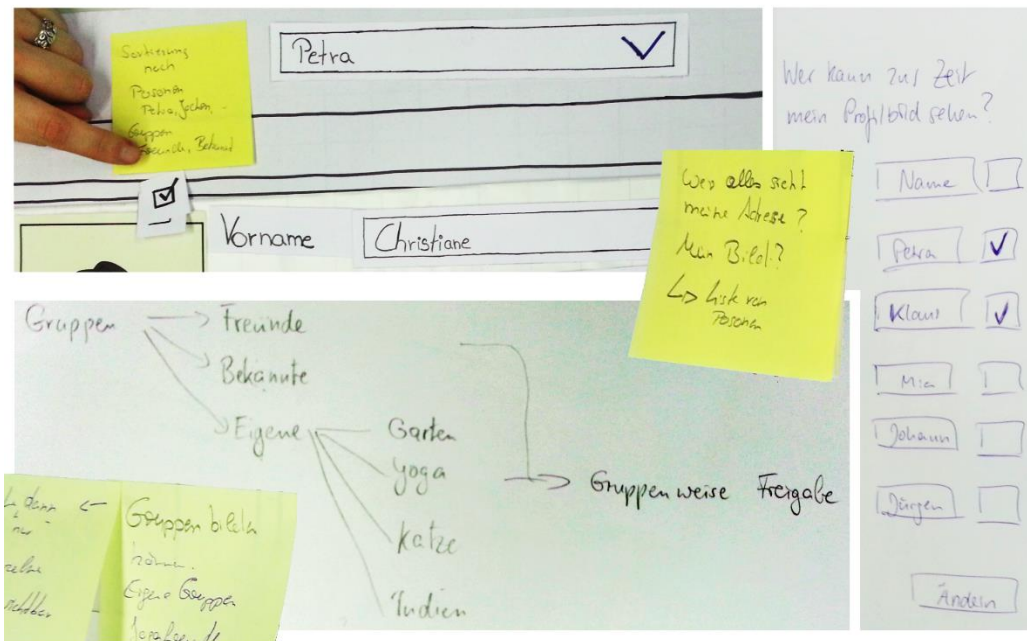 Sortierung
nach
Personen
Petra, Jochen,
Gruppen
Freunde, Bekannt
Petra
Vorname
Christiane
Wer alles sieht
meine Adresse?
Mein Bild?
↳ Liste von
Personen
Wer kann zur Zeit
mein Profilbild sehen?
Name
Petra
Klaus
Mia
Johann
Jürgen
Ändern
Gruppen
Freunde
Bekannte
Eigene
Garten
Yoga
Katze
Indien
Gruppenweise Freigabe
dann
nur
Gruppen bilden
können.
Eigene Gruppen